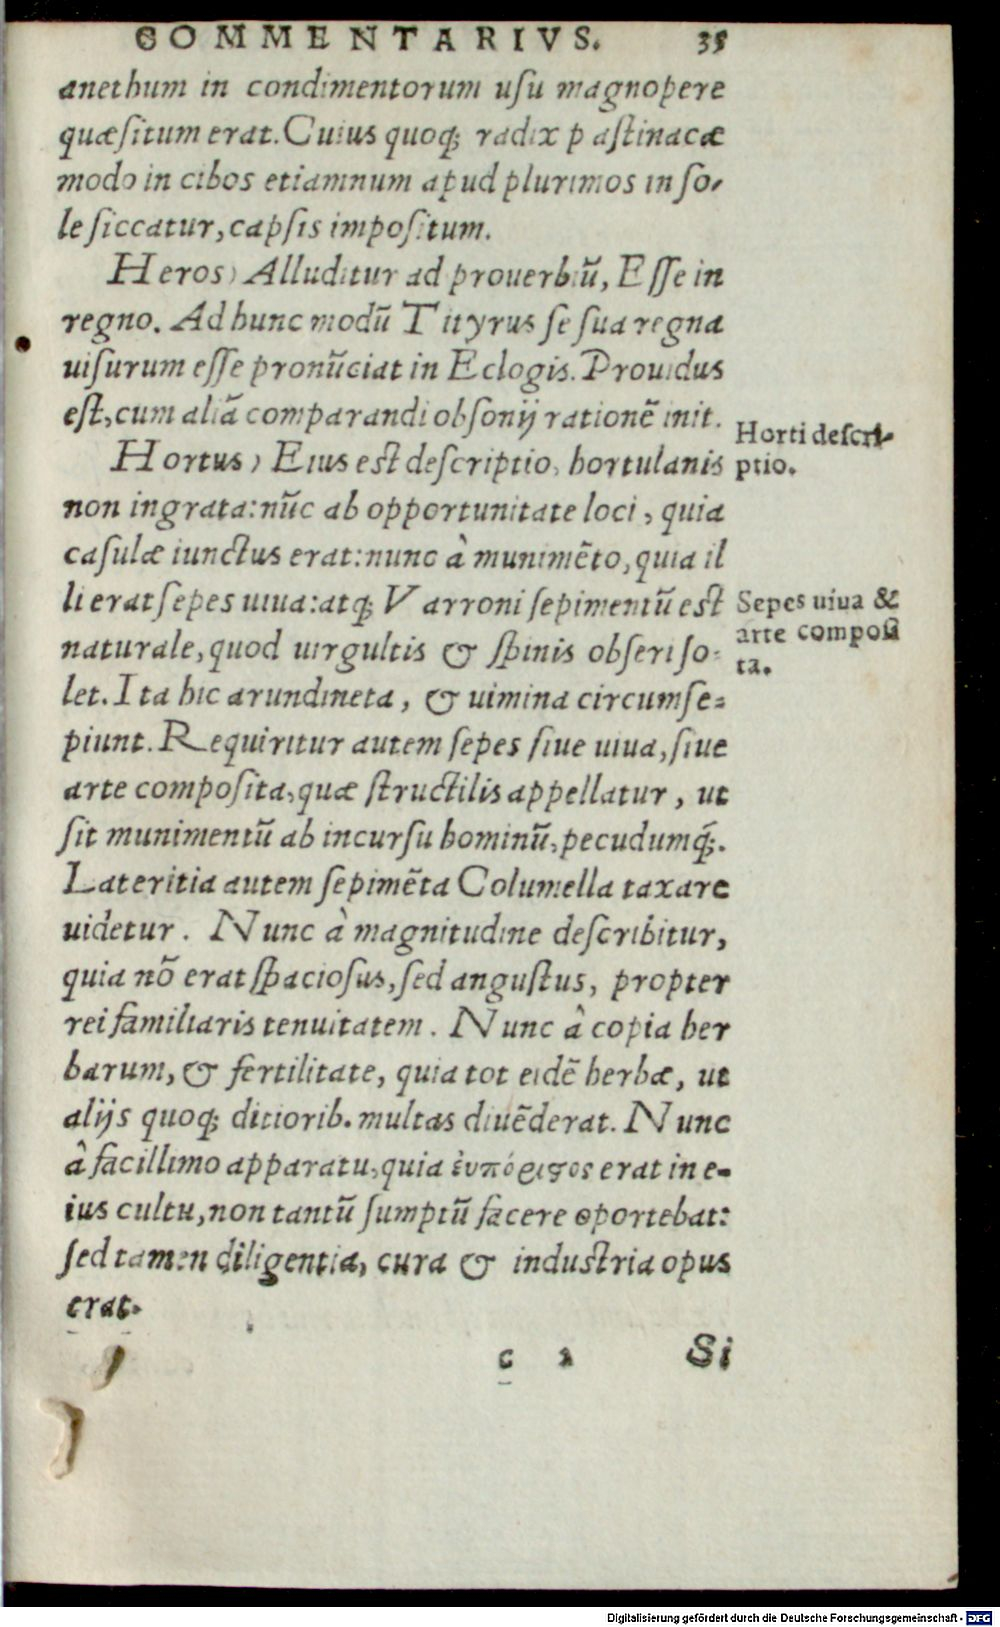 COMMENTARIVS. 35
anethum in condimentorum uſu magnopere
quæſitum erat. Cuius quoq; radix p aſtinacæ
modo in cibos etiamnum apud plurimos in ſo-
le ſiccatur, capſis impoſitum.
Heros) Alluditur ad prouerbiū, Eſſe in
regno. Ad hunc modū Tityrus ſe ſua regna
uiſurum eſſe pronūciat in Eclogis. Prouidus
eſt, cum aliā comparandi obſonij rationē init.
Horti deſcri-
ptio.
Hortus) Eius est deſcriptio, hortulanis
non ingrata: nūc ab opportunitate loci, quia
caſulæ iunctus erat: nunc à munimēto, quia il
li erat ſepes uiua: atq; Varroni ſepimentū est
Sepes uiua &
arte compoſi
ta.
naturale, quod uirgultis & ſpinis obſeri ſo-
let. Ita hic arundineta, & uimina circumſe-
piunt. Requiritur autem ſepes ſiue uiua, ſiue
arte compoſita, quæ ſtructilis appellatur, ut
ſit munimentū ab incurſu hominū, pecudumq́;.
Lateritia autem ſepimēta Columella taxare
uidetur. Nunc à magnitudine deſcribitur,
quia nō erat ſpacioſus, ſed anguſtus, propter
rei familiaris tenuitatem. Nunc à copia her
barum, & fertilitate, quia tot eidē herbæ, ut
alijs quoq; ditiorib. multas diuēderat. Nunc
à facillimo apparatu, quia ἐυπόριςος erat in e-
ius cultu, non tantū ſumptū facere oportebat:
ſed tamen diligentia, cura & industria opus
erat.
c 2 Si
Digitalisierung gefördert durch die Deutsche Forschungsgemeinschaft - DFG